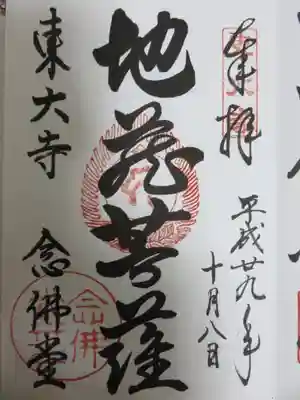 奉拝
平成廿九年
十月八日
地蔵菩薩
東大寺 念佛堂
念佛